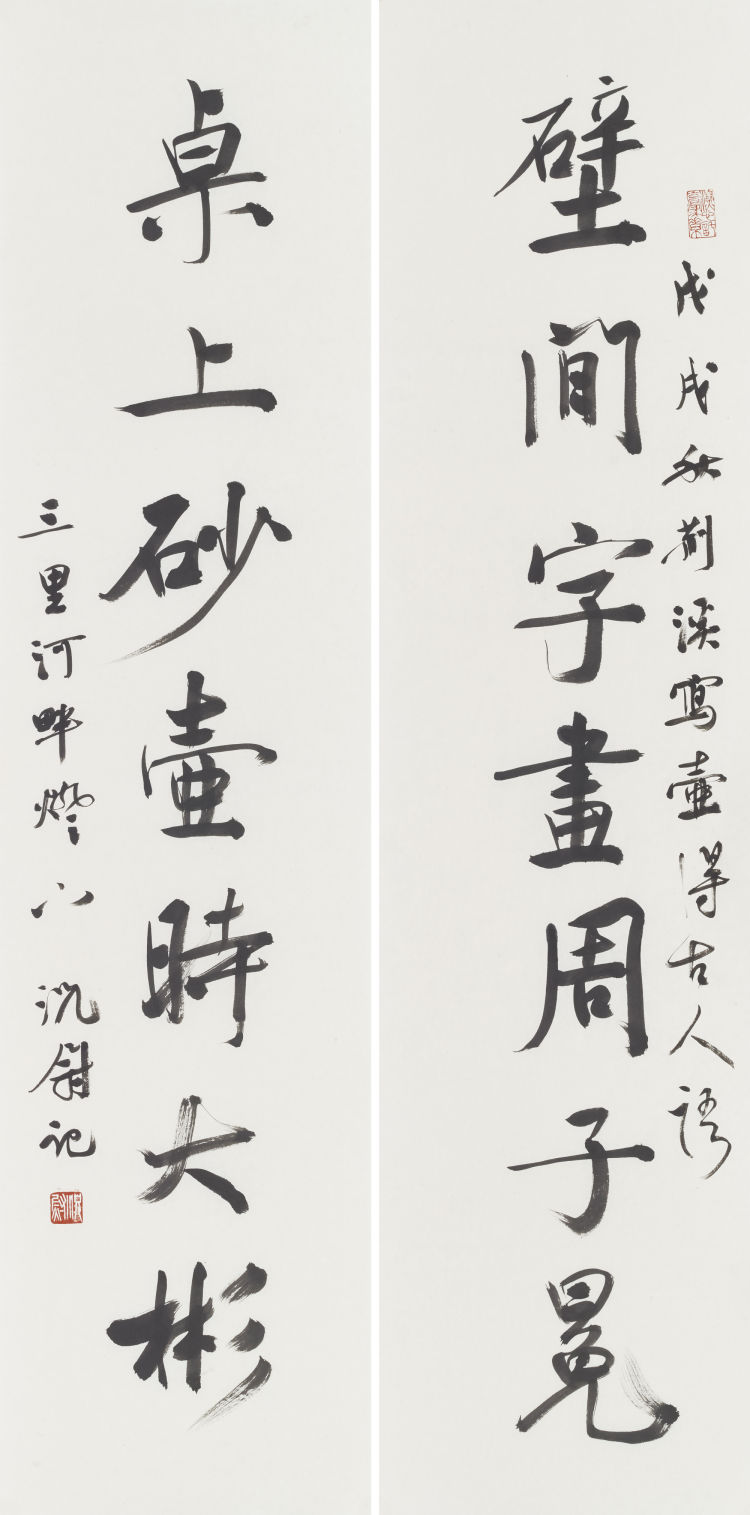 戊戌秋荆溪寫壺得古人語
壁間字畫周子冕
桌上砂壺時大彬
三里河畔燈下 沈尉記